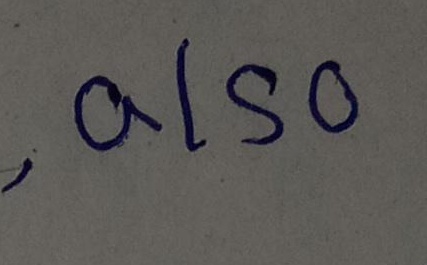 , also